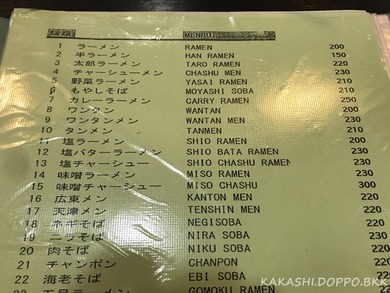 麺類 MENRUI
1 ラーメン RAMEN 200
2 半ラーメン HAN RAMEN 150
3 太郎ラーメン TARO RAMEN 220
4 チャーシューメン CHASHU MEN 230
5 野菜ラーメン YASAI RAMEN 210
6 もやしそば MOYASHI SOBA 210
7 カレーラーメン GARRY RAMEN 250
8 ワンタン WANTAN 200
9 ワンタンメン WANTAN MEN 230
10 タンメン TANMEN 210
11 塩ラーメン SHIO RAMEN 200
12 塩バターラーメン SHIO BATA RAMEN 230
13 塩チャーシュー SHIO CHASHU RAMEN 230
14 味噌ラーメン MISO RAMEN 230
15 味噌チャーシュー MISO CHASHU 300
16 広東メン KANTON MEN 220
17 天津メン TENSHIN MEN 220
18 ネギそば NEGISOBA 220
19 ニラそば NIRA SOBA 220
20 肉そば NIKU SOBA 220
21 チャンポン CHANPON 220
22 海老そば EBI SOBA
五目ラーメン GOMOKU RAMEN
KAKASHI.DOPPO.BKK